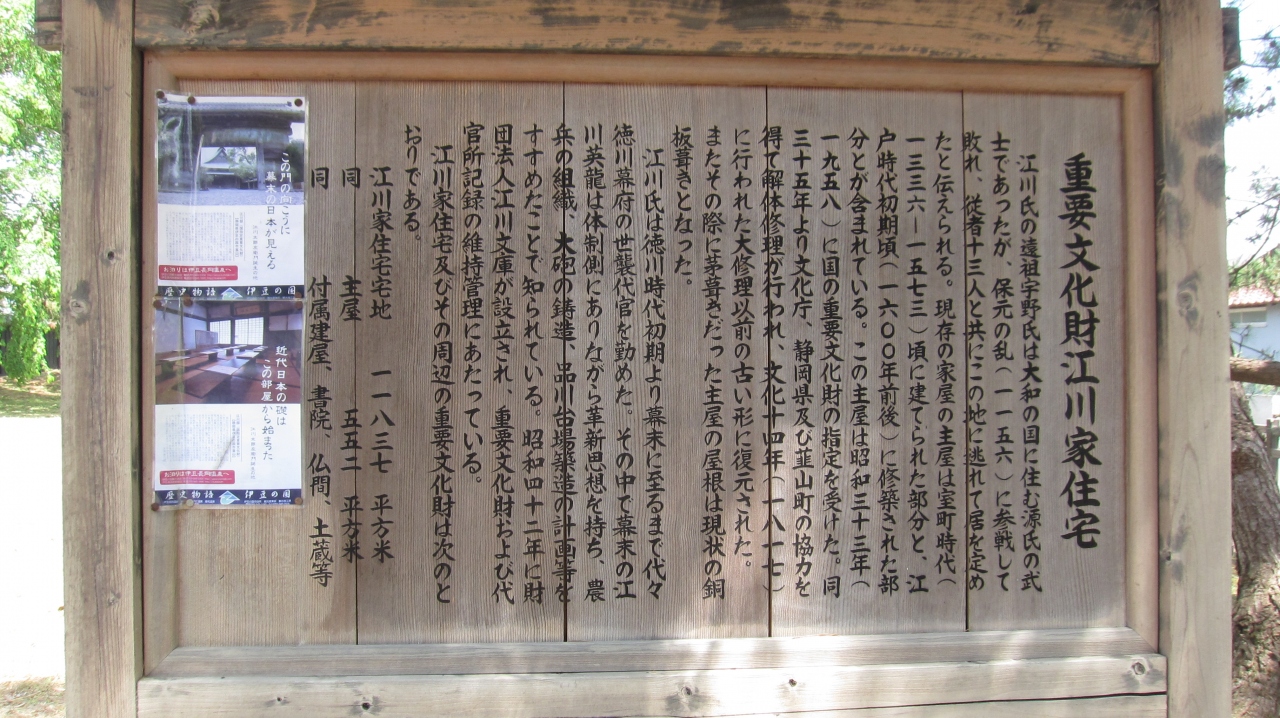 重要文化財江川家住宅
江川氏の遠祖宇野氏は大和の国に住む源氏の武
士であったが、保元の乱(一一五六)に参戦して
敗れ、従者十三人と共にこの地に逃れて居を定め
たと伝えられる。現存の家屋の主屋は室町時代(
一三三六―一五七三)頃に建てられた部分と、江
戸時代初期頃(一六〇〇年前後)に修築された部
分とが含まれている。この主屋は昭和三十三年(
一九五八)に国の重要文化財の指定を受けた。同
三十五年より文化庁、静岡県及び韮山町の協力を
得て解体修理が行われ、文化十四年(一八一七)
に行われた大修理以前の古い形に復元された。
またその際に茅葺きだった主屋の屋根は現状の銅
板葺きとなった。
江川氏は徳川時代初期より幕末に至るまで代々
徳川幕府の世襲代官を勤めた。その中で幕末の江
川英龍は体制側にありながら革新思想を持ち、農
兵の組織、大砲の鋳造、品川台場築造の計画等を
すすめたことで知られている。昭和四十二年に財
団法人江川文庫が設立され、重要文化財および代
官所記録の維持管理にあたっている。
江川家住宅及びその周辺の重要文化財は次のと
おりである。
江川家住宅宅地 一一八三七 平方米
同 主屋 五五二 平方米
同 付属建屋、書院、仏間、土蔵等
この門の向こうに
幕末の日本が見える
お泊りは伊豆長岡温泉へ
歴史物語 伊豆の国
近代日本の礎は
この部屋から始まった
お泊りは伊豆長岡温泉へ
歴史物語 伊豆の国